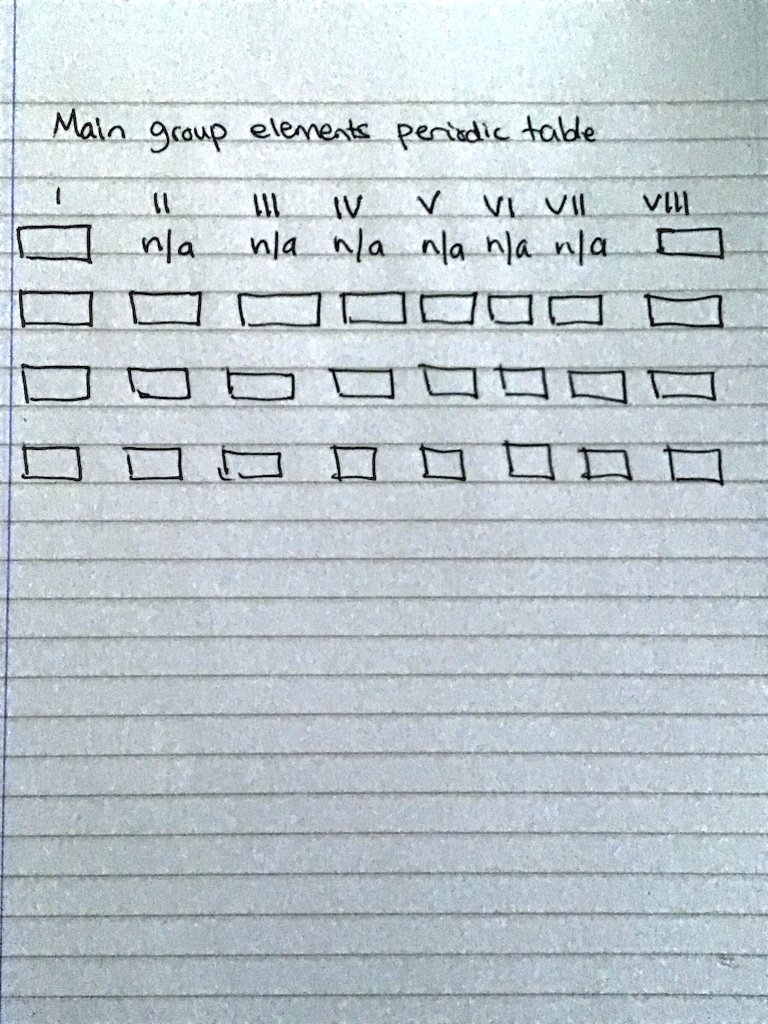 Main group elements periodic table
I II III IV V VI VII VIII
n/a n/a n/a n/a n/a n/a